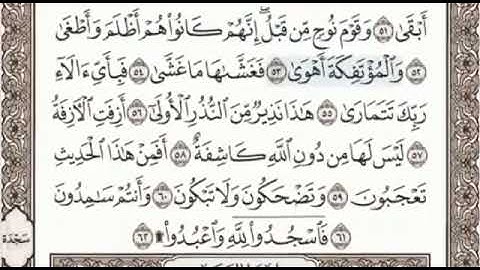 أَبْقَىٰ ۝٥١ وَقَوْمَ نُوحٍ مِّن قَبْلُ ۖ إِنَّهُمْ كَانُوا۟ هُمْ أَظْلَمَ وَأَطْغَىٰ
۝٥٢ وَٱلْمُؤْتَفِكَةَ أَهْوَىٰ ۝٥٣ فَغَشَّىٰهَا مَا غَشَّىٰ ۝٥٤ فَبِأَىِّ ءَالَآءِ
رَبِّكَ تَتَمَارَىٰ ۝٥٥ هَـٰذَا نَذِيرٌ مِّنَ ٱلنُّذُرِ ٱلْأُولَىٰٓ ۝٥٦ أَزِفَتِ ٱلْـَٔازِفَةُ
۝٥٧ لَيْسَ لَهَا مِن دُونِ ٱللَّهِ كَاشِفَةٌ ۝٥٨ أَفَمِنْ هَـٰذَا ٱلْحَدِيثِ
تَعْجَبُونَ ۝٥٩ وَتَضْحَكُونَ وَلَا تَبْكُونَ ۝٦٠ وَأَنتُمْ سَـٰمِدُونَ
۝٦١ فَٱسْجُدُوا۟ لِلَّهِ وَٱعْبُدُوا۟ ۩ ۝٦٢
سَجْدَة